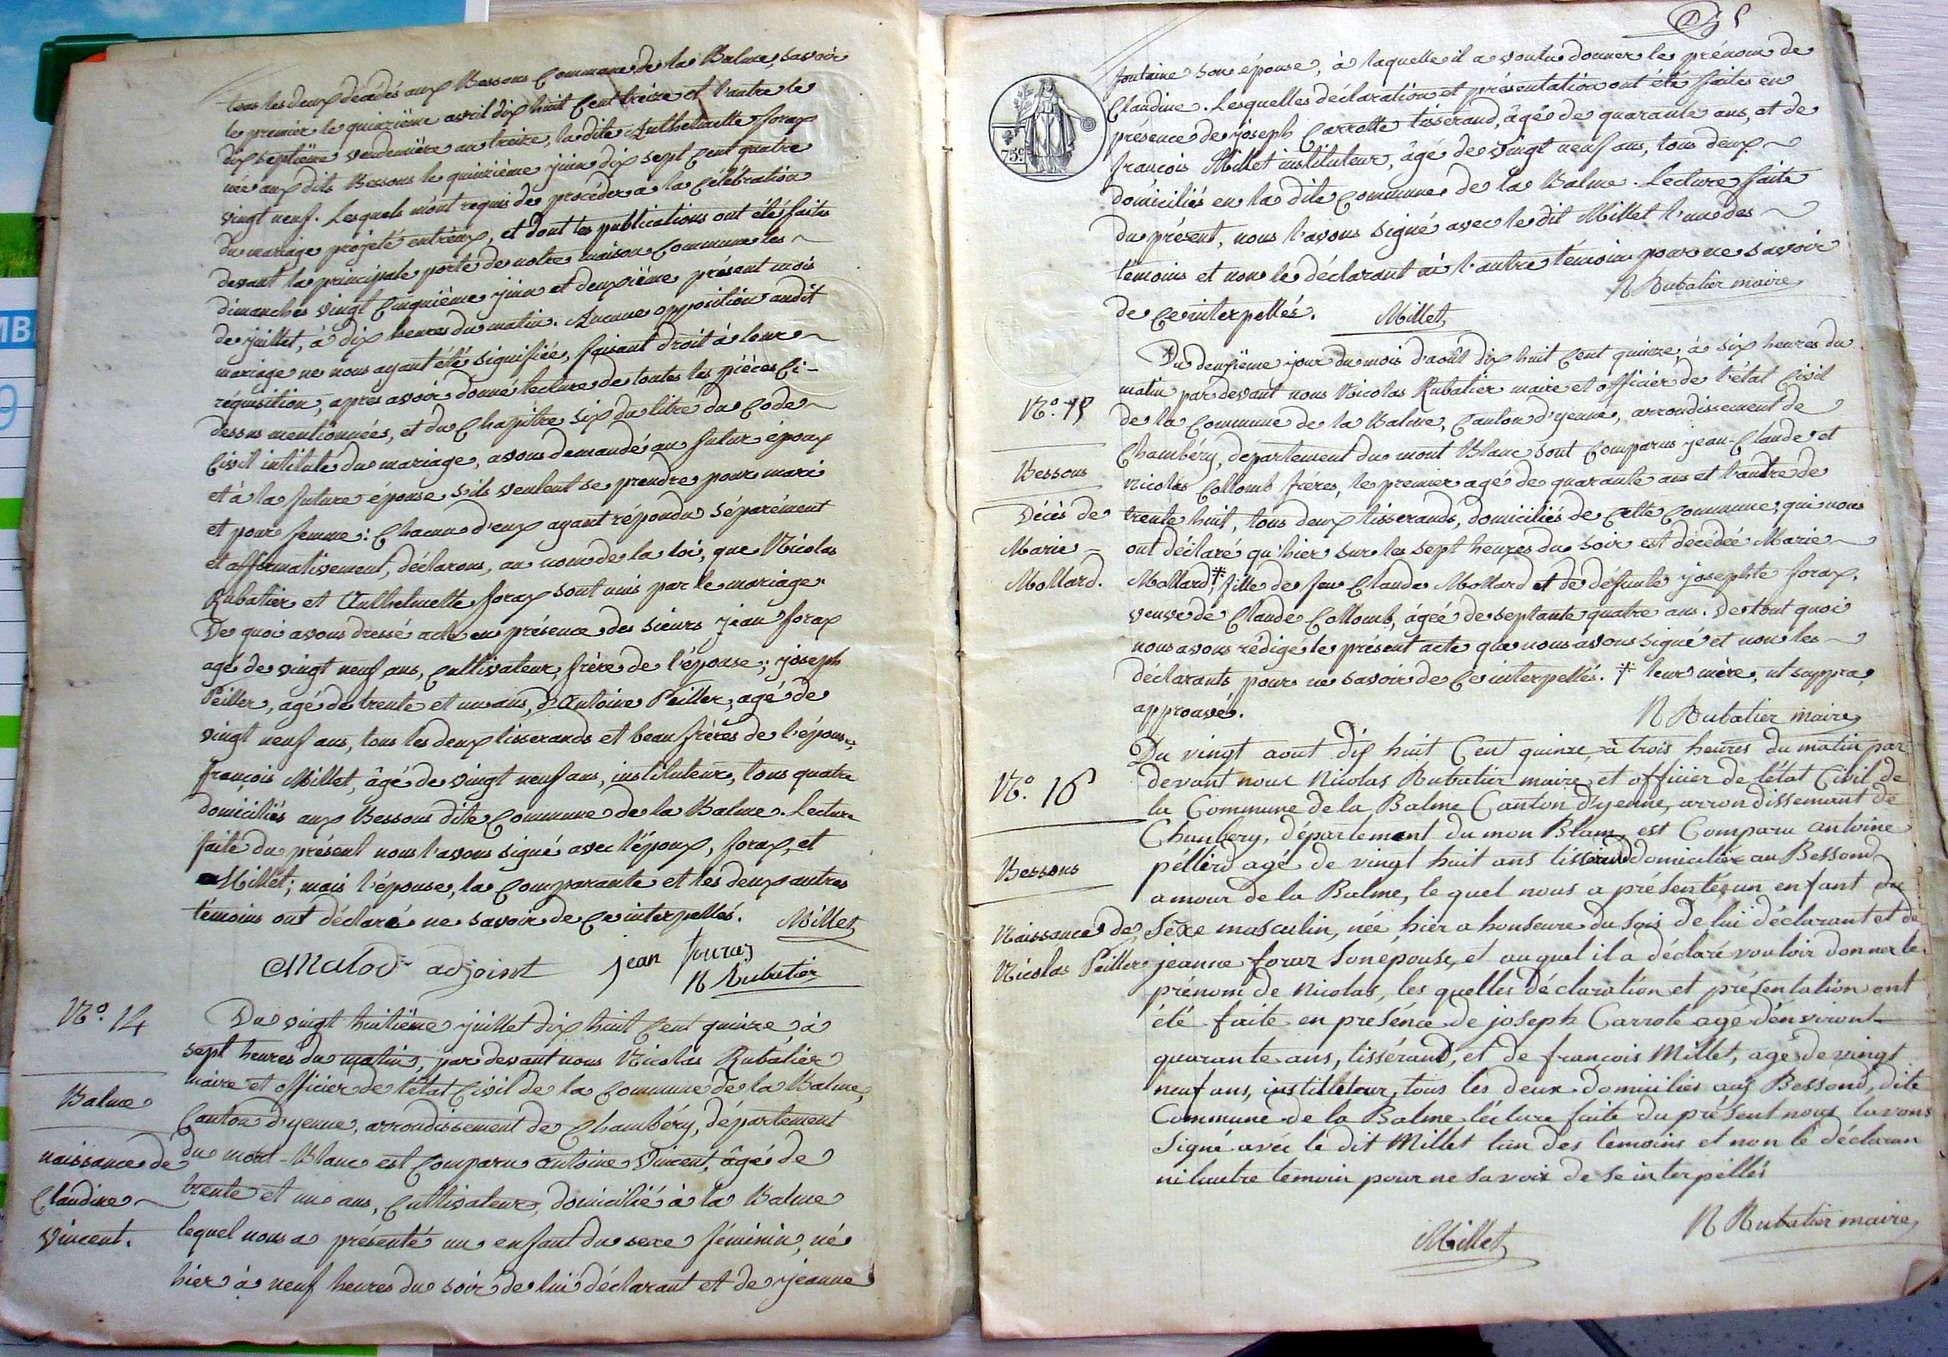 tous les deux décédés aux Bessons Commune de la Balme, savoir
le premier le quinzième avril dix huit Cent treize et l'autre le
dix septième vendemière an treize, la dite Anthelmette forax
née aux dits Bessons le quinzième juin dix sept Cent quatre
vingt neuf. Lesquels m'ont requis de procéder à la Célébration
du mariage projeté entr'eux, et dont les publications ont été faites
devant la principale porte de notre maison Commune les
dimanches vingt Cinquième juin et deuxième présent mois
de juillet, à dix heures du matin. Aucune opposition audit
mariage ne nous ayant été signifiée, faisant droit à leur
réquisition, après avoir donné lecture de toutes les pièces Ci-
dessus mentionnées, et du Chapitre six du titre du Code
Civil intitulé du mariage, avons demandé au futur époux
et à la future épouse s'ils veulent se prendre pour mari
et pour femme: Chacun d'eux ayant répondu séparément
et affirmativement, déclarons, au nom de la loi, que Nicolas
Rubatier et Anthelmette forax sont unis par le mariage.
De quoi avons dressé acte en présence des sieurs jean forax
agé de vingt neuf ans, Cultivateur, frère de l'épouse; joseph
Peiller, agé de trente et un ans, d'Antoine Peiller, agé de
vingt neuf ans, tous les deux tisserands et beau frères de l'épouse,
françois Millet, âgé de vingt neuf ans, instituteur, tous quatre
domiciliés aux Bessons dite Commune de la Balme. Lecture
faite du présent nous l'avons signé avec l'époux, forax, et
Millet; mais l'épouse, la Comparante et les deux autres
témoins ont déclaré ne savoir de Ce interpellés. Millet
Malod adjoint jean fourax
N Rubatier
N.º 14
Balme
naissance de
Claudine
Vincent.
Du vingt huitième juillet dix huit Cent quinze à
sept heures du matin, par devant nous Nicolas Rubatier
maire et officier de l'état Civil de la Commune de la Balme,
Canton d'yenne, arrondissement de Chambéry, département
du mont-Blanc est Comparu antoine Vincent, âgé de
trente et un ans, Cultivateur, domicilié à la Balme
lequel nous a présenté un enfant du sexe féminin, né
hier à neuf heures du soir de lui déclarant et de jeanne
75 c
fontaine son épouse, à laquelle il a voulu donner les prénom de
Claudine. Lesquelles déclaration et présentation ont été faites en
présence de joseph Carrotte tisserand, âgé de quarante ans, et de
françois Millet instituteur, âgé de vingt neuf ans, tous deux
domiciliés en la dite Commune de la Balme. Lecture faite
du présent, nous l'avons signé avec le dit Millet l'un des
témoins et non le déclarant ni l'autre témoin pour ne savoir
de Ce interpellés. Millet N Rubatier maire
N.º 15
Bessons
Décès de
Marie
Mollard.
Du deuxième jour du mois d'août dix huit Cent quinze, à six heures du
matin par devant nous Nicolas Rubatier maire et officier de l'état Civil
de la Commune de la Balme, Canton d'yenne, arrondissement de
Chambéry, département du mont Blanc sont Comparus jean-Claude et
nicolas Collomb frères, le premier agé de quarante ans et l'autre de
trente huit, tous deux tisserands, domiciliés de Cette Commune; qui nous
ont déclaré qu'hier sur les sept heures du soir est décédée Marie
Mollard *, fille de feu Claude Mollard et de défunte josephte forax,
veuve de Claude Collomb, âgée de septante quatre ans. De tout quoi
nous avons rédigé le présent acte que nous avons signé et non les
déclarants pour ne savoir de Ce interpellés. * leur mère, ut suppra,
approuvé. N Rubatier maire
N.º 16
Bessons
Naissance de
Nicolas Peiller
Du vingt aout dix huit Cent quinze, à trois heures du matin par
devant nous Nicolas Rubatier maire et officier de l'état Civil de
la Commune de la Balme Canton d'yenne, arrondissement de
Chanbery, département du mon Blanc, est Comparu antoine
pellierd agé de vingt huit ans tisserand domicilié au Bessond
amour de la Balme, le quel nous a présenté un enfant du
Sexe masculin, née, hier a honseure du soir de lui déclarant et de
jeanne forax Son epouse, et au quel il a déclaré vouloir donner le
prénom de Nicolas, les quelles déclaration et présentation ont
été faite en présence de joseph Carrote agé d'environt
quarante ans, tissérand, et de francois Millet, agé de vingt
neuf ans, instituteur, tous les deux domiciliés aux Bessond, dite
Commune de la Balme lecture faite du présent nous lavons
Signé avec le dit Millet lun des témoins et non le déclaran
ni lautre temoin pour ne savoir de se interpellés
Millet N Rubatier maire